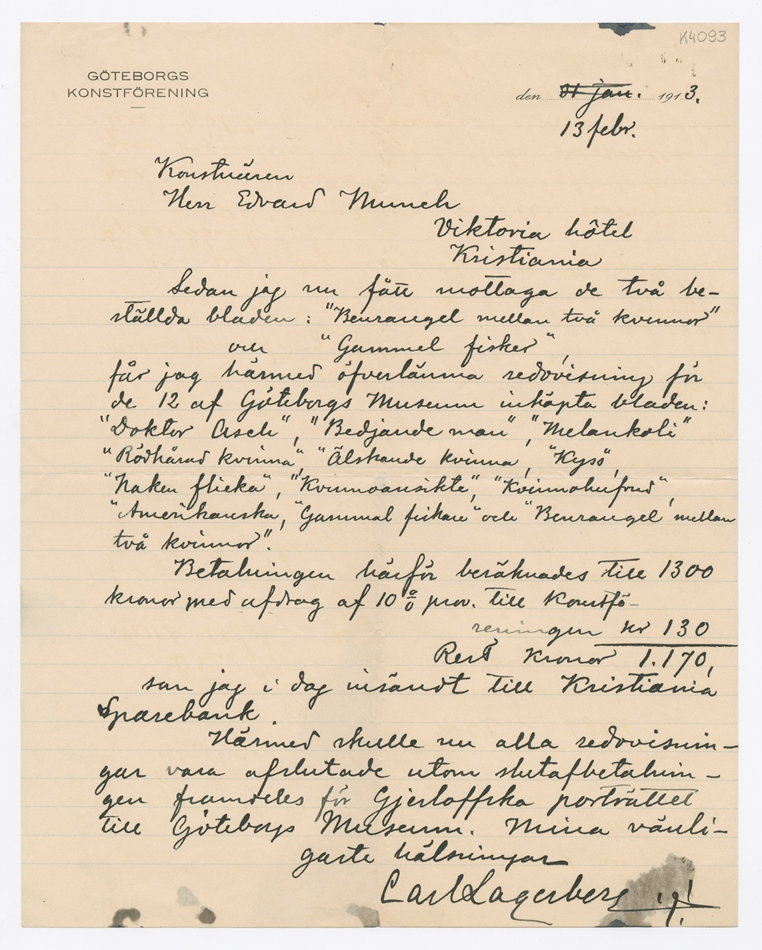 K4093
GÖTEBORGS
KONSTFÖRENING
den 31 jan. 1913.
13 febr.
Konstnären
Herr Edvard Munch
Viktoria hôtel
Kristiania
Sedan jag nu fått mottaga de två be-
ställda bladen: "Benrangel mellan två kvinnor"
och "Gammel fisker",
får jag härmed öfverlämna redovisning för
de 12 af Göteborgs Museum inköpta bladen:
"Doktor Asch", "Bedjande man", "Melankoli"
"Rödhårad kvinna", "Älskande kvinna, "Kyss,
"Naken flicka", "Kvinnoansikte", "Kvinnohufvud",
"Amerikanska, "Gammal fiskare" och "Benrangel mellan
två kvinnor".
Betalningen härför beräknades till 1300
kronor med afdrag af 10 % prov. till Konstfö-
reningen kr 130
Rest Kronor 1.170,
som jag i dag insändt till Kristiania
Sparebank.
Härmed skulle nu alla redovisnin-
gar vara afslutade utom slutafbetalnin-
gen framdeles för Gjerloffska porträttet
till Göteborgs Museum. Mina vänli-
gaste hälsningar
Carl Lagerberg